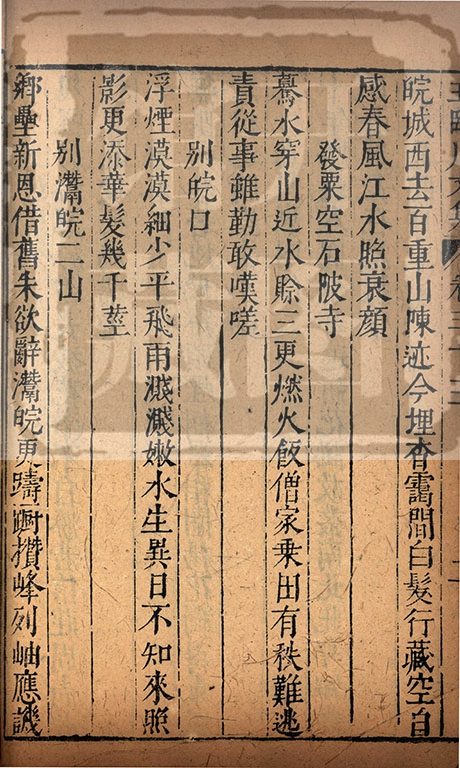 王臨川文集 卷三十三 二
皖城西去百重山陳迹今埋杳靄間白髮行藏空自
感春風江水照衰顏
發粟空石陂寺
驀水穿山近水賒三更燃火飯僧家乘田有秩難逃
責從事雖勤敢嘆嗟
別皖口
浮煙漠漠細少平飛雨濺濺嫩水生異日不知來照
影更添華髮幾千莖
別灊皖二山
鄉壘新恩借舊朱欲辭灊皖更躊躕攢峰列岫應譏